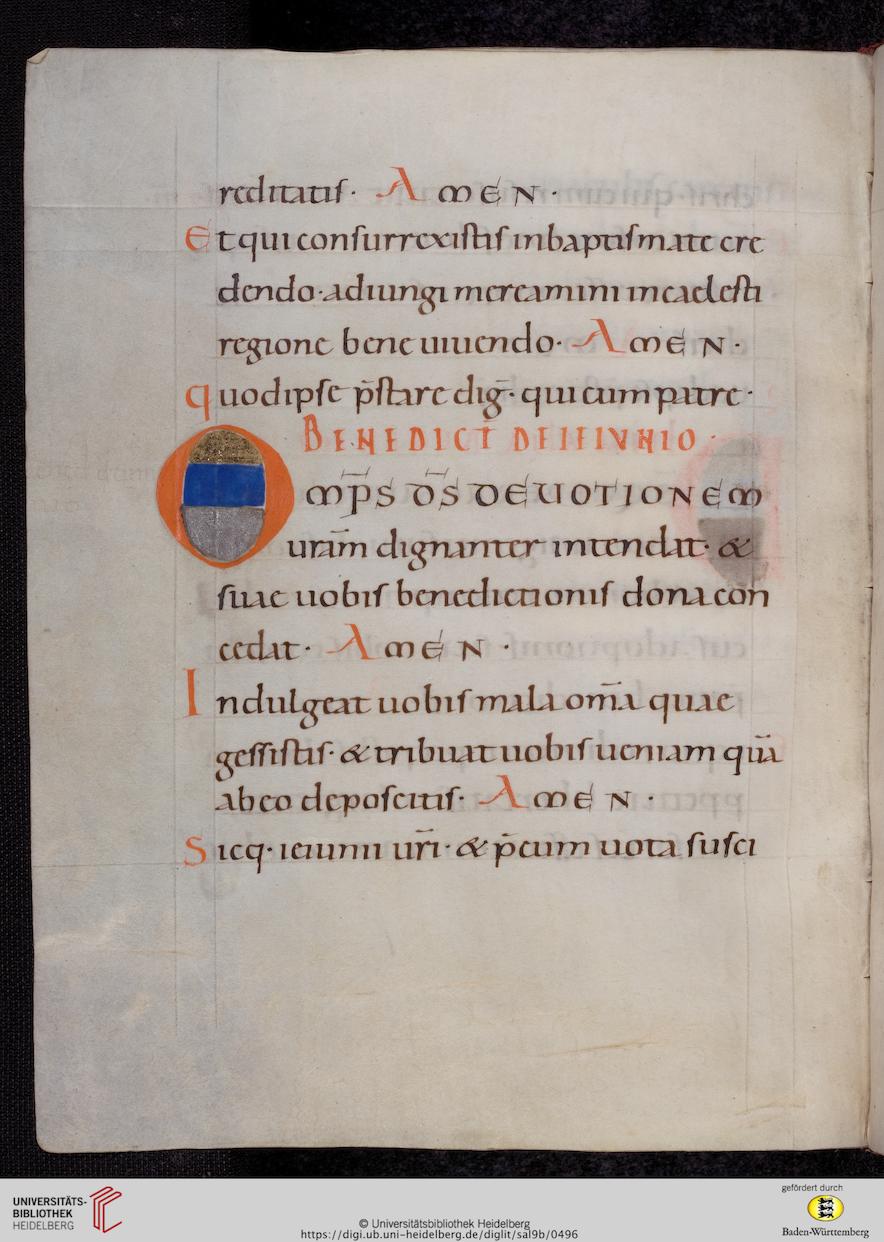 reditatis· AMEN·
Et qui consurrexistis in baptismate cre
dendo· adiungi mereamini in caelesti
regione bene uiuendo· AMEN·
quod ipse p̄stare dig̅· qui cum patre·
BENEDICT̄ DE IEIVNIO·
OMP̄S D̄S DEUOTIONEM
urām dignanter intendat· &
suae uobis benedictionis dona con
cedat· AMEN·
Indulgeat uobis mala om̄a quae
gessistis· & tribuat uobis ueniam quā
ab eo deposcitis· AMEN·
Sicq· ieiunii ur̄i· & p̄cum uota susci
UNIVERSITÄTS-
BIBLIOTHEK
HEIDELBERG
© Universitätsbibliothek Heidelberg
https://digi.ub.uni-heidelberg.de/diglit/sal9b/0496
gefördert durch
Baden-Württemberg